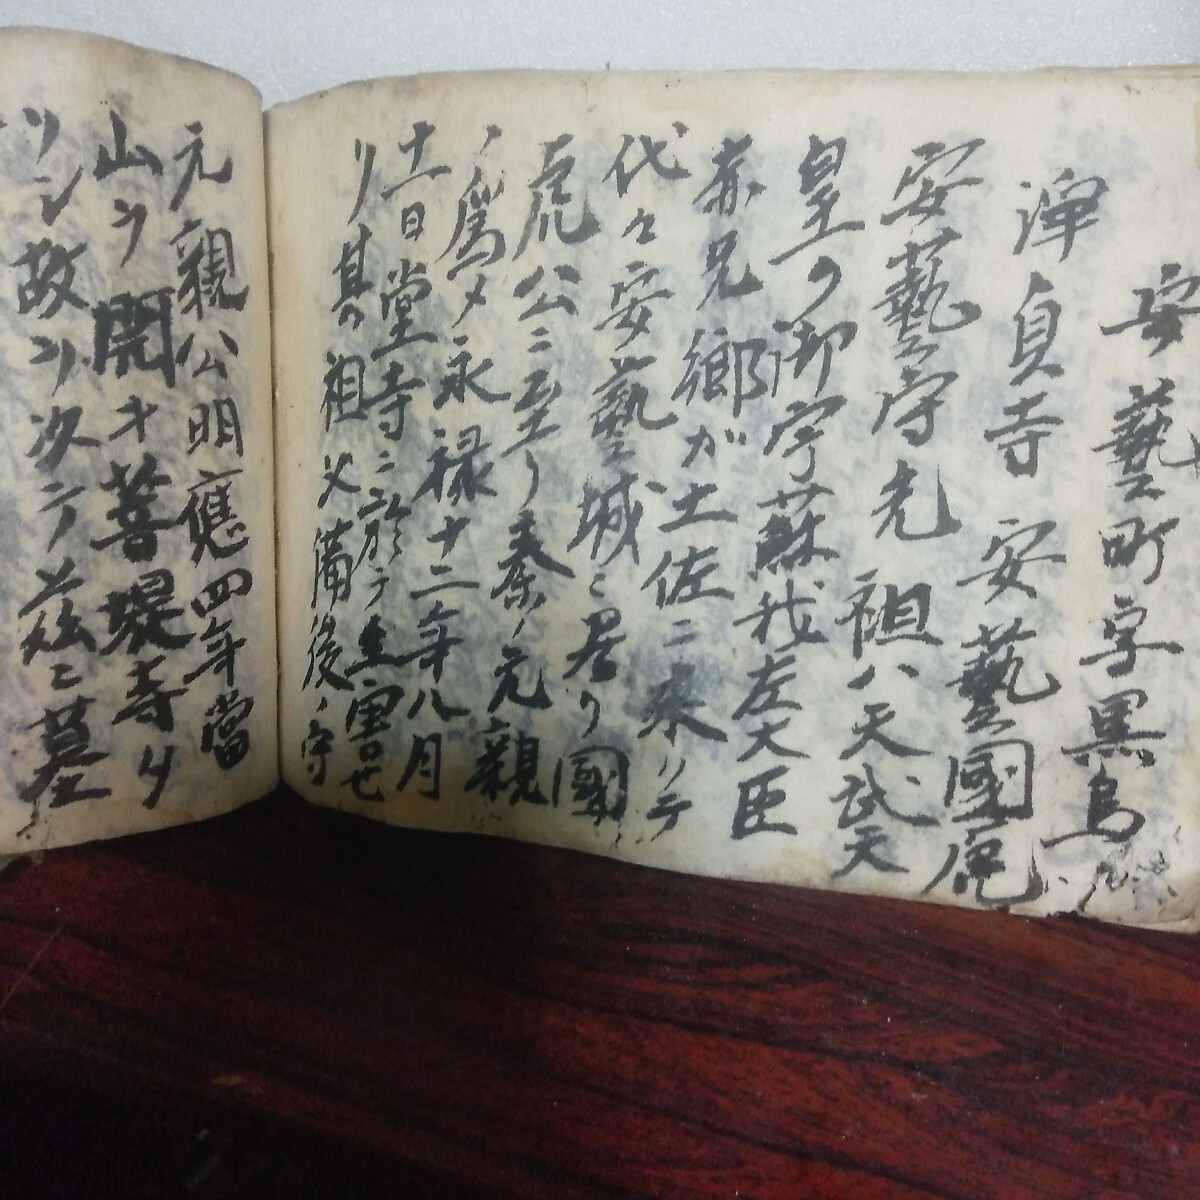 安藝町字黒鳥
淨貞寺 安藝國虎
安藝守先祖ハ天武天
皇の御宇蘇我左大臣
赤兄郷ガ土佐ニ来リテ
代々安藝城ニ居り國
虎公ニ至り秦ノ元親
ノ為メ永禄十二年八月
十一日堂寺ニ於テ生害セ
リ其の祖父備後ノ守
元親公明應四年當
山ヲ開キ菩堤寺タ
リシ故ヲ次テ茲ニ墓